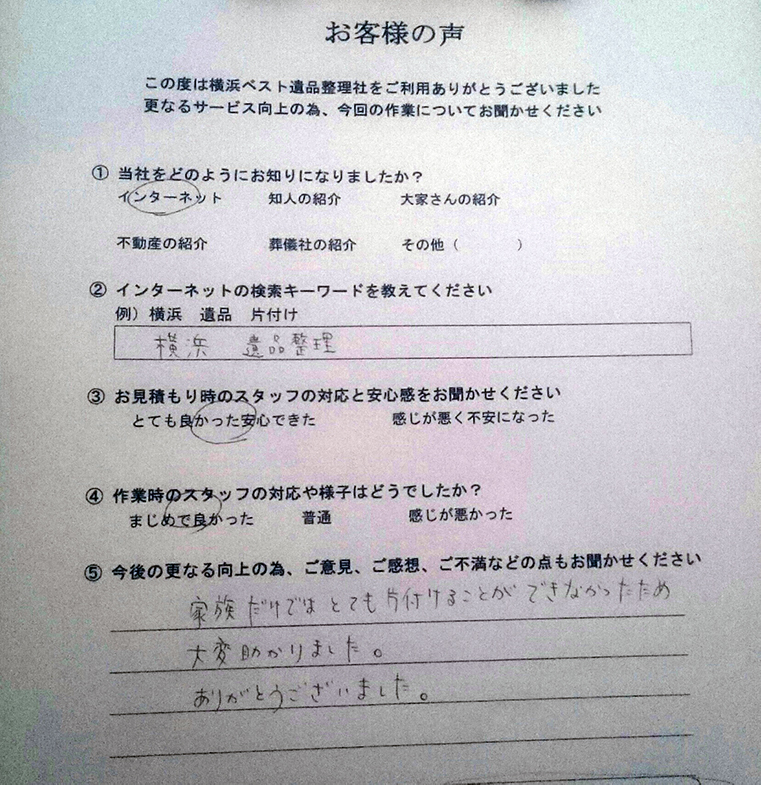 お客様の声
この度は横浜ベスト遺品整理社をご利用ありがとうございました
更なるサービス向上の為、今回の作業についてお聞かせください
① 当社をどのようにお知りになりましたか？
インターネット 知人の紹介 大家さんの紹介
不動産の紹介 葬儀社の紹介 その他（ ）
② インターネットの検索キーワードを教えてください
例）横浜 遺品 片付け
横浜 遺品整理
③ お見積もり時のスタッフの対応と安心感をお聞かせください
とても良かった安心できた 感じが悪く不安になった
④ 作業時のスタッフの対応や様子はどうでしたか？
まじめで良かった 普通 感じが悪かった
⑤ 今後の更なる向上の為、ご意見、ご感想、ご不満などの点もお聞かせください
家族だけではとても片付けることができなかったため
大変助かりました。
ありがとうございました。